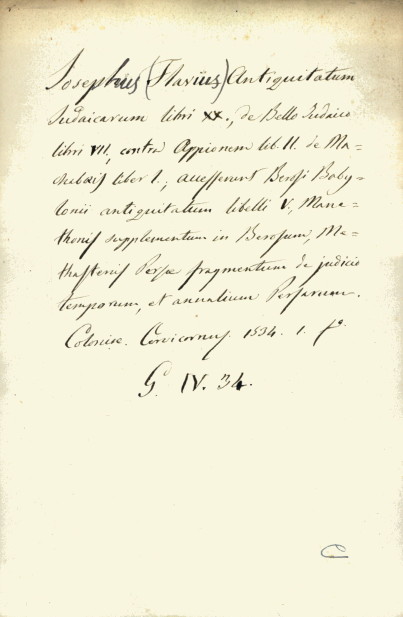 Josephus (Flavius) Antiquitatum
Judaicarum libri XX., de Bello Judaico
libri VII, contra Appionem lib. II. de Ma=
chabæis liber I.; accesserunt Berosi Baby=
lonii antiquitatum libelli V, Mane=
thonis supplementum in Berosum, Me=
thastenis Persæ fragmentum de judicio
temporum, et annalium Persarum.
Coloniæ. Cervicornus. 1534. 1. fo.
G IV. 34.
C